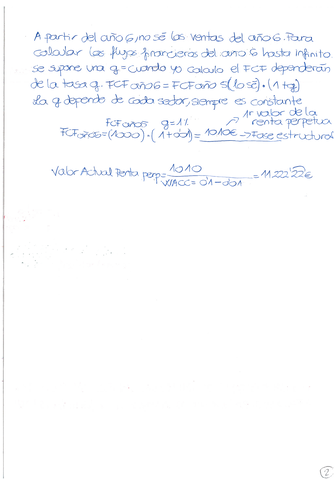 A partir del año 6, no sé las ventas del año 6. Para
calcular los flujos financieros del año 6 hasta infinito
se supone una g = cuando yo calculo el FCF dependerán
de la tasa g. FCF año 6 = FCF año 5 (lo sé) · (1+g)
La g depende de cada sector, siempre es constante
1r valor de la
FCF año 5 g = 1% renta perpetua
FCF año 6 = (1000) · (1+0'01) = 1010€ → Fase estructural
Valor Actual Renta perp = 1010 / WACC = 0'1 - 0'01 = 11.222'22€
2